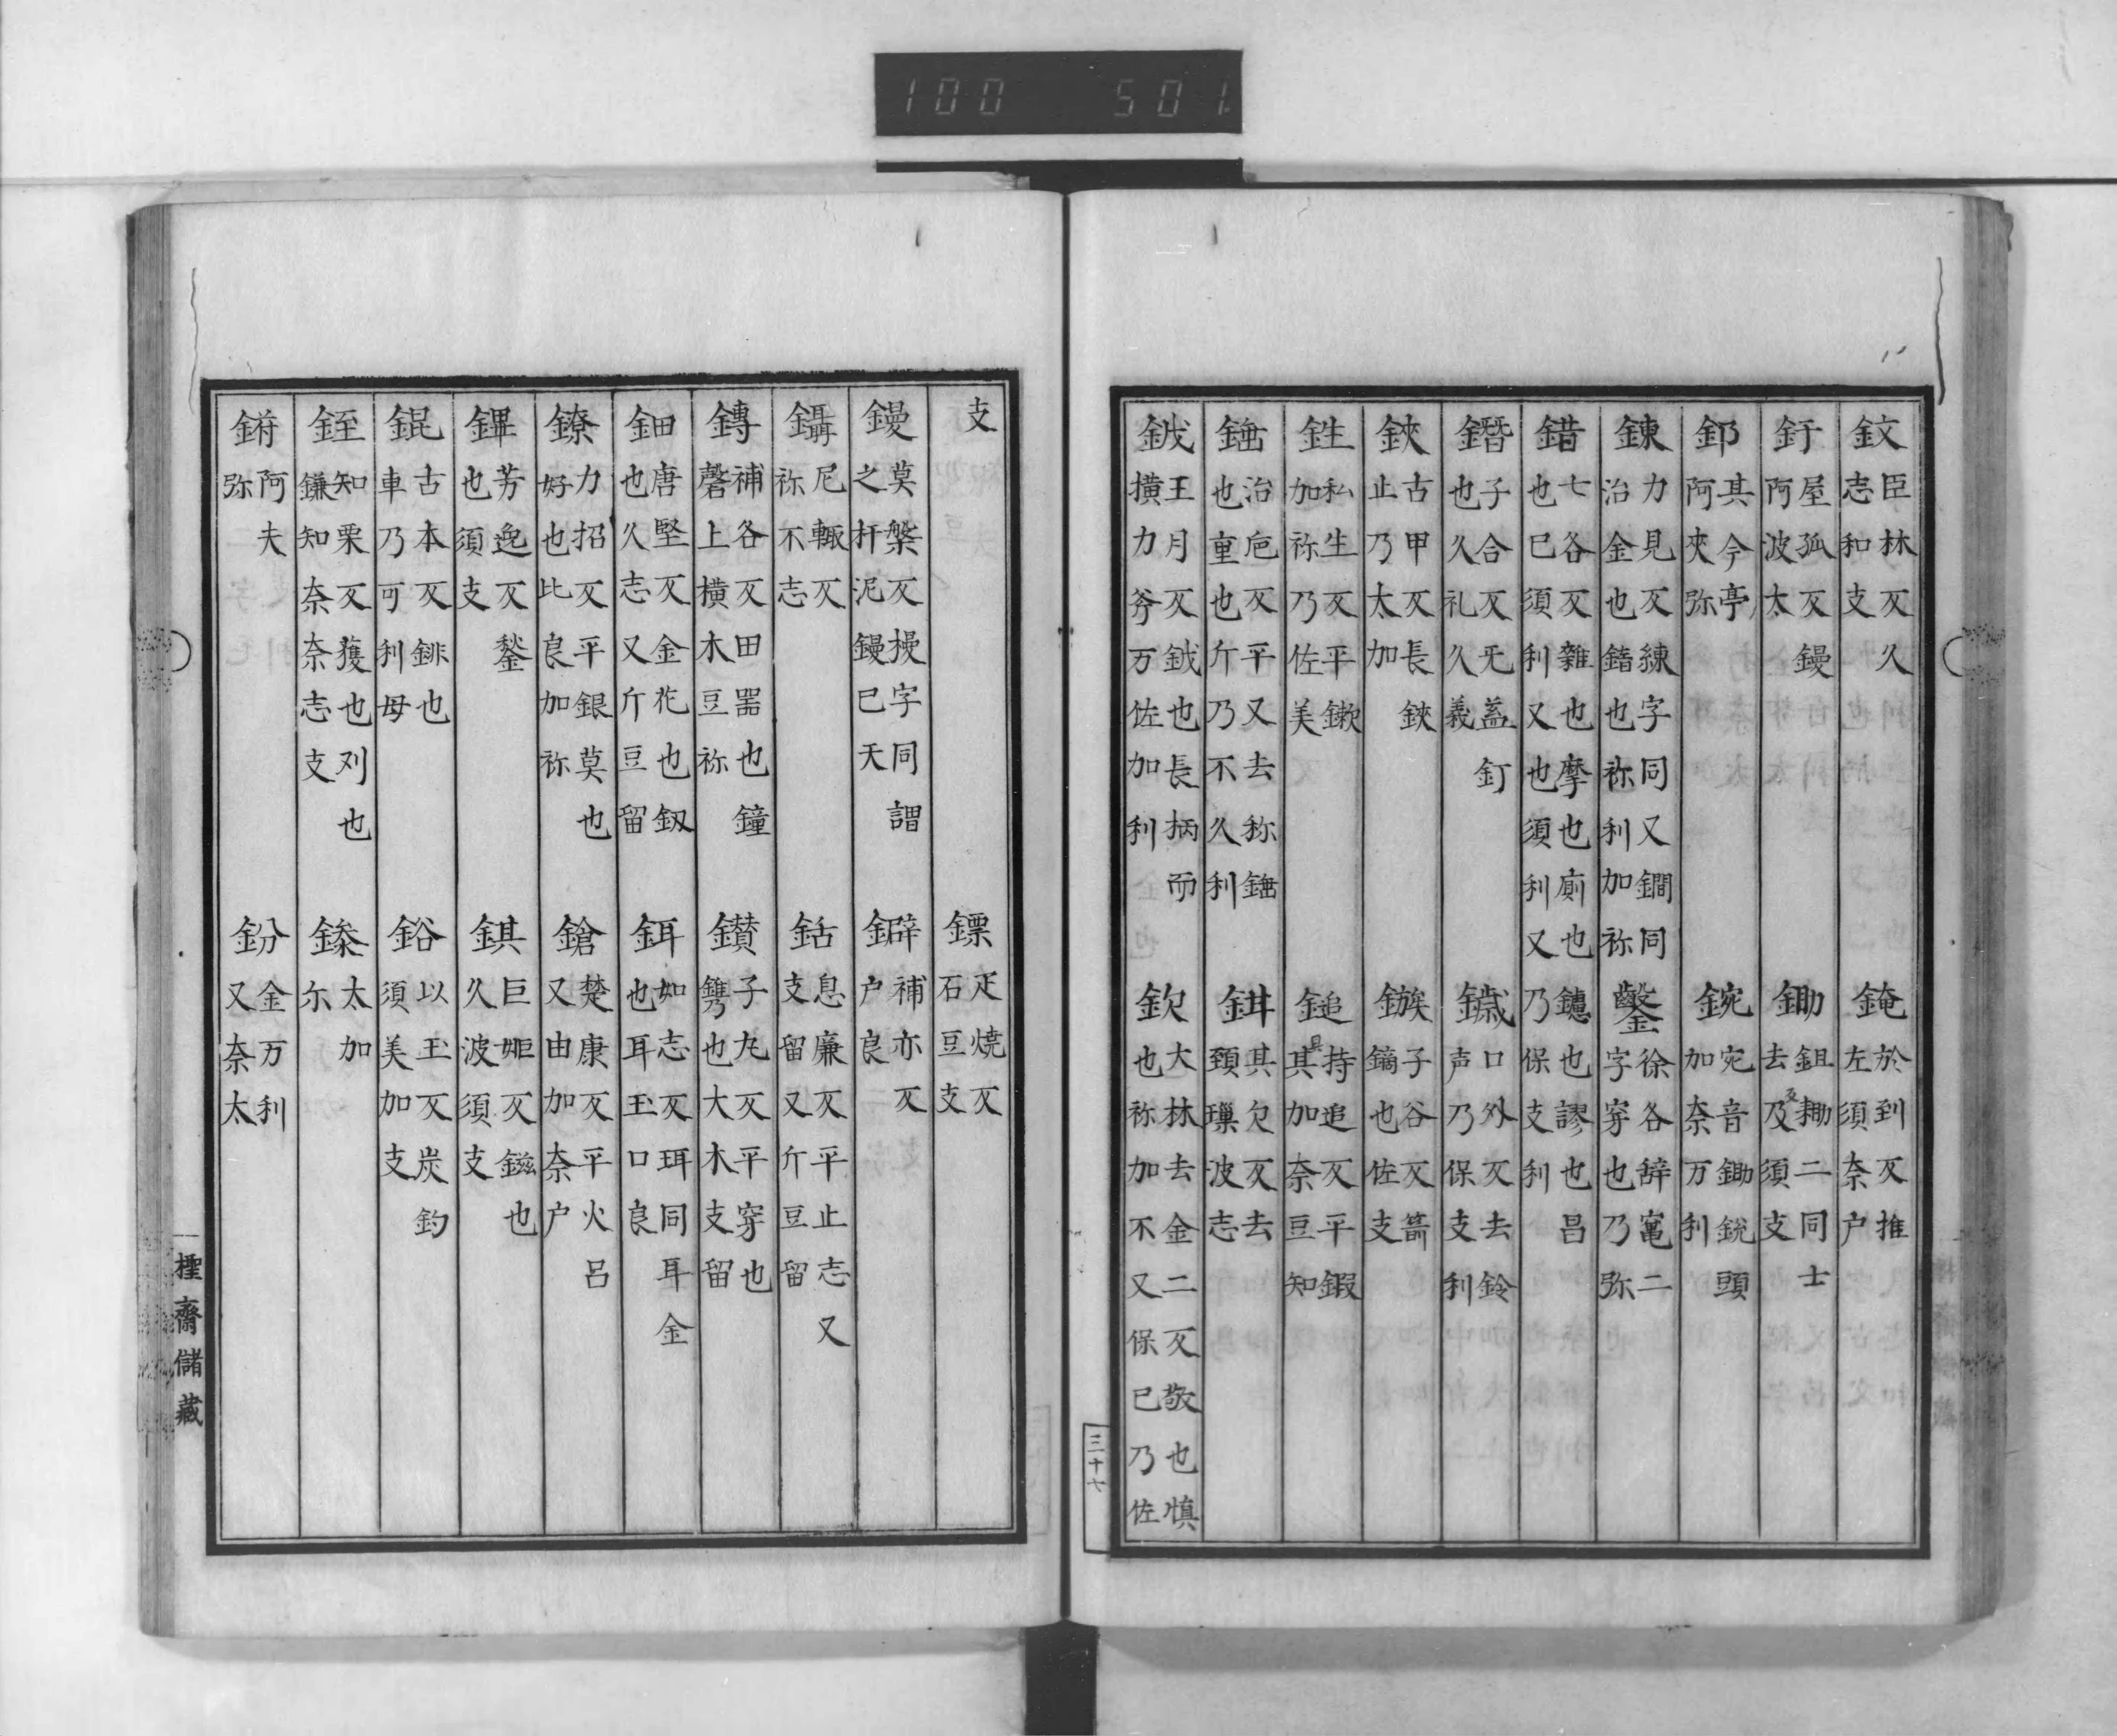 100 501
鈘 臣林反久志和支
鈘 於到反推左須奈户
釪 屋孤反鏝阿波太
鋤 鉏耡二同士去及須支
其今亭阿夾弥
鋺 宛音鋤鋭頭加奈万利
錬 力見反練字同又鐧同治金也鍇也祢利加祢
鑿 徐各辞竃二字穿也乃弥
錯 七各反雜也摩也廁也鏸也謬也昌也巳須利又也須利又乃保支利
子合反旡蓋釘也久礼久義
鏚 口外反去鈴声乃保支利
鋏 古甲反長鋏止乃太加
鏃 子谷反箭鏑也佐支
鉎 私生反平鏉加祢乃佐美
鎚 持追反平鍜其加奈豆知
治巵反平又去称也重也斤乃不久利
其欠反去頚瓅波志
鉞 王月反鉞也長柄而横力斧万佐加利
欽 大林去金二反敬也慎也祢加不又保巳乃佐
三十六
支
鏢 疋焼反石豆支
鏝 莫槃反槾字同謂之杆泥鏝巳天
鐴 補亦反户良
鑷 尼輙反祢不志
銛 息廉反平止志又支留又斤豆留
鎛 補各反田器也鐘磬上横木豆祢
鑚 子丸反平穿也鐫也大木支留
鈿 唐堅反金花也釼也久志又斤豆留
鉺 如志反珥同耳金也耳玉口良
鐐 力招反平銀莫也好也比良加祢
鎗 楚康反平火呂又由加奈户
鏎 芳逸反鏊也須支
錤 巨姫反鎡也久波須支
錕 古本反錐也車乃可利母
鋊 以玉反炭鈎須美加支
銍 知栗反獲也刈也鎌知奈奈志支
太加尓
阿夫弥
鈖 金万利又奈太
檉齋儲藏